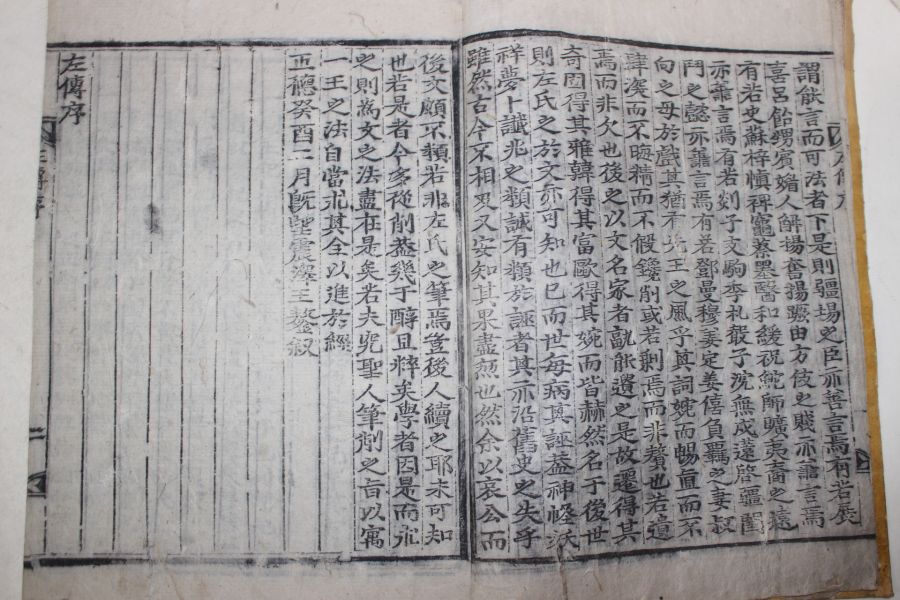 謂能言而可法者下是則疆場之臣亦善言焉有若展
喜呂飴甥賓媚人解揚奮揚蹶由方伎之賤亦善言焉
有若史蘇梓慎裨竈蔡墨醫和緩祝鮀師曠夷裔之遠
亦善言焉有若郯子支駒季札聲子沈無戍薳啓疆閨
門之懿亦善言焉有若鄧曼穆姜定姜僖負羈之妻叔
向之母於戲其猶有先王之風乎其詞婉而暢直而不
肆深而不晦精而不假鑱削或若剩焉而非贅也若遺
焉而非欠也後之以文名家者孰能遺之是故遷得其
奇固得其雅韓得其富歐得其婉而皆赫然名于後世
則左氏之於文亦可知也已而世每病其誣蓋神怪妖
祥夢卜讖兆之類誠有類於誣者其亦沿舊史之失乎
雖然古今不相及又安知其果盡然也然余以哀公而
後文頗不類若非左氏之筆焉豈後人續之耶未可知
也若是者今多從削蓋幾于醇且粹矣學者因是而求
之則爲文之法盡在是矣若夫究聖人筆削之旨以寓
一王之法自當求其全以進於經
正德癸酉二月旣望震澤王鏊叙
左傳序
左傳序
左傳序